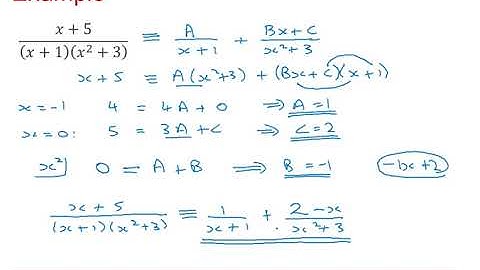 Example
x + 5 / (x + 1)(x² + 3) ≡ A / x + 1 + Bx + C / x² + 3
x + 5 ≡ A(x² + 3) + (Bx + C)(x + 1)
x = -1 4 = 4A + 0 ⇒ A = 1
x = 0: 5 = 3A + C ⇒ C = 2
x²] 0 = A + B ⇒ B = -1 -1x + 2
x + 5 / (x + 1)(x² + 3) ≡ 1 / x + 1 + 2 - x / x² + 3